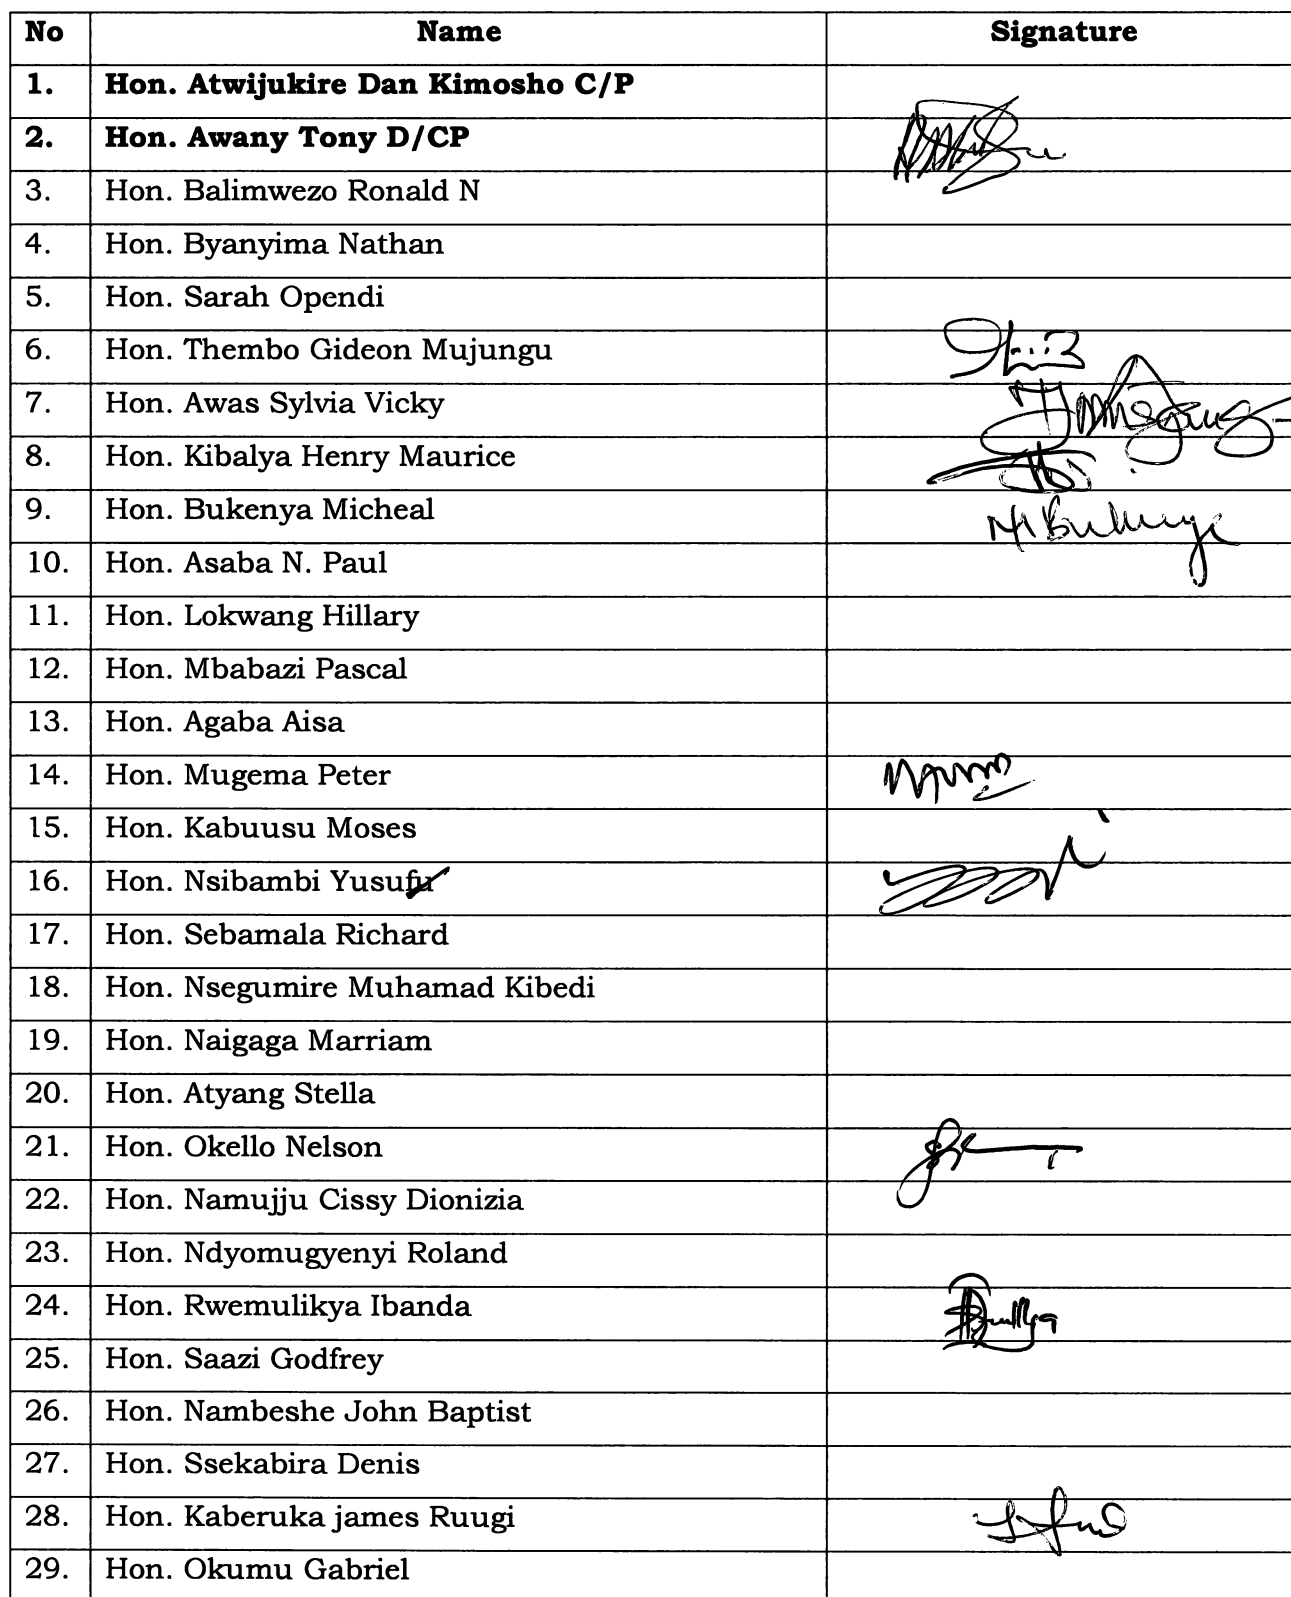 No Name Signature
1. Hon. Atwijukire Dan Kimosho C/P
2. Hon. Awany Tony D/CP
3. Hon. Balimwezo Ronald N
4. Hon. Byanyima Nathan
5. Hon. Sarah Opendi
6. Hon. Thembo Gideon Mujungu
7. Hon. Awas Sylvia Vicky
8. Hon. Kibalya Henry Maurice
9. Hon. Bukenya Micheal
10. Hon. Asaba N. Paul
11. Hon. Lokwang Hillary
12. Hon. Mbabazi Pascal
13. Hon. Agaba Aisa
14. Hon. Mugema Peter
15. Hon. Kabuusu Moses
16. Hon. Nsibambi Yusufu
17. Hon. Sebamala Richard
18. Hon. Nsegumire Muhamad Kibedi
19. Hon. Naigaga Marriam
20. Hon. Atyang Stella
21. Hon. Okello Nelson
22. Hon. Namujju Cissy Dionizia
23. Hon. Ndyomugyenyi Roland
24. Hon. Rwemulikya Ibanda
25. Hon. Saazi Godfrey
26. Hon. Nambeshe John Baptist
27. Hon. Ssekabira Denis
28. Hon. Kaberuka james Ruugi
29. Hon. Okumu Gabriel